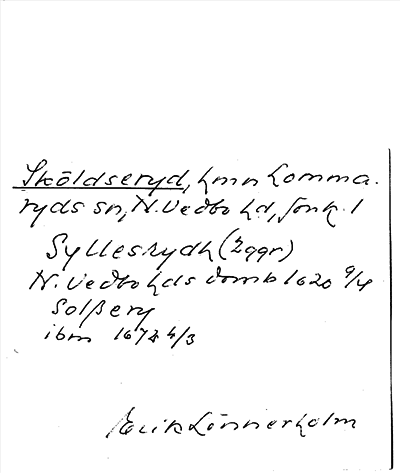 Sköldseryd, hmn Lomma-
ryds sn, N. Vedbo hd, Jönk. l
Syllesrydh (2 ggr)
N. Vedbo hds domb 1620 9/4
Solßery
ibm 1674 4/3
Erik Lönnerholm